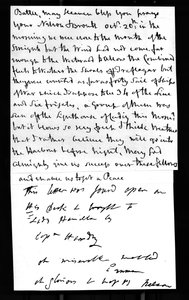 Battle, may heaven bless you prays
your Nelson & Bronte. Octr. 20th, in the
morning we were close to the mouth of the
Streights but the Wind had not come far
enough to the Westward to allow the Combined
fleets to Weather the Shoals off Traflagar but
they were counted as far as forty Sail of Ships
of War which I suppose to be 34 of the Line
and six frigates, a Group of them was
seen off the Lighthouse of Cadiz this Morng
but it blows so very fresh & thick weather
that I rather believe they will go into
the Harbour before Night. May God
Almighty give us success over these fellows
and enable us to get a Peace
This letter was found open on
His Desk & brought to
Lady Hamilton by
Capn Hardy
oh miserable wretched
Emma
oh glorious & happy Nelson